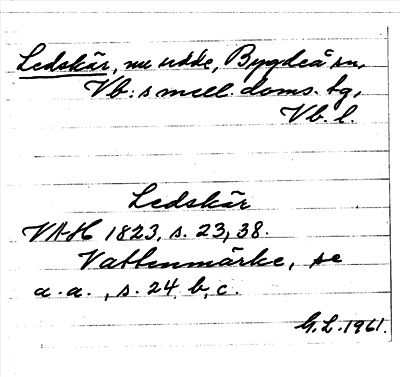 Ledskär, nu udde, Bygdeå sn,
Vb:s mell. doms. tg,
Vb. l.
Ledskär
VAH 1823, s. 23, 38.
Vattenmärke, se
a.a., s. 24 b, c.
G.L. 1961.